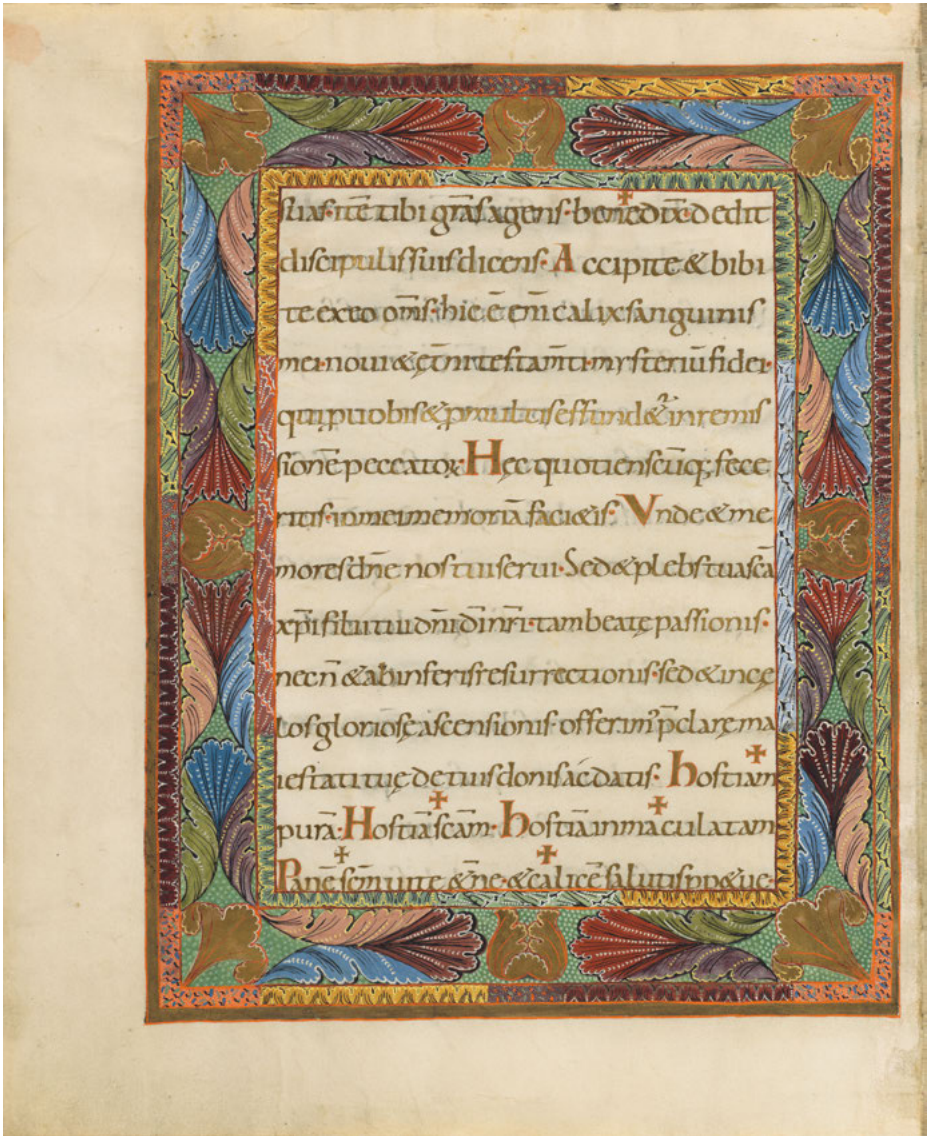 suas· itē tibi gr̄as agens· bened̄ixit dedit
discipulis suis dicens· Accipite & bibi
te ex eo om̄s· hic ē em̄ calix sanguinis
mei· noui & ęt̄ni testam̄ti· mysteriū fidei·
qui ꝓ uobis & ꝓ multis effund&ur in remis
sionē peccatoꝝ· Hęc quotienscūq; fece
ritis· in mei memoriā faci&is· Vnde & me
mores dn̄e nos tui serui· Sed & plebs tua sc̄a
xp̄i filii tui dn̄i dī nr̄i· tam beatę passionis·
necn̄ & ab inferis resurrectionis· sed & in cę
los glorioseę ascensionis· offerim᾽ p̄clarę ma
iestati tuę de tuis donis ac datis· hostiam
purā· Hostiā sc̄am· hostiā inmaculatam
Panē sc̄m uitę &̄nę· & calicē salutis pp&uę·